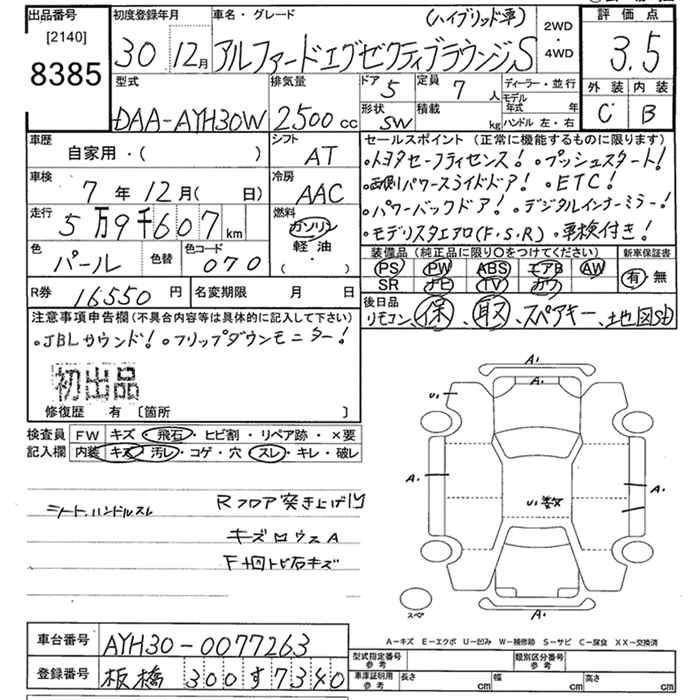 出品番号 初度登録年月 車名・グレード (ハイブリッド車) 2WD・4WD 評価点
[2140]
8385 30 12月 アルファードエグゼクティブラウンジS 3.5
型式 排気量 ドア 5 定員 7人 ディーラー・並行 外装 内装
モデル年式 年
DAA-AYH30W 2500cc 形状 SW 積載 kg ハンドル 左・右 C B
車歴 シフト セールスポイント (正常に機能するものに限ります)
自家用・( ) AT ・トヨタセーフティセンス! ・プッシュスタート!
車検 冷房 ・両側パワースライドドア! ・ETC!
7年12月( 日) AAC ・パワーバックドア! ・デジタルインナーミラー!
走行 燃料 ・モデリスタエアロ(F.S.R) ・車検付き!
5万9千607km ガソリン 軽油 ・( )
色 色替 色コード 装備品 (純正品に限り〇をつけてください) 新車保証書
パール 070 PS PW ABS エアB AW 有・無
SR ナビ TV カワ
R券 16550円 名変期限 月 日 後日品
リモコン、保、取、スペアキー、地図SD
注意事項申告欄(不具合内容等は具体的に記入して下さい)
・JBLサウンド! ・フリップダウンモニター!
初出品
修復歴 有 〔箇所 〕
検査員 FW キズ・飛石・ヒビ割・リペア跡・×要
記入欄 内装 キズ・汚レ・コゲ・穴・スレ・キレ・破レ
シート、ハンドルスレ Rフロア突き上げ凹
キズロウスA
F廻トビ石キズ
A.
A.
U.
A. A.
U.数
スペ A.
A−キズ E−エクボ U−凹み W−補修跡 S−サビ C−腐食 XX−交換済
車台番号 AYH30-0077263 型式指定番号 参考 類別区分番号 参考
登録番号 板橋 300す7340 車庫証明用 参考 長さ cm 幅 cm 高さ cm